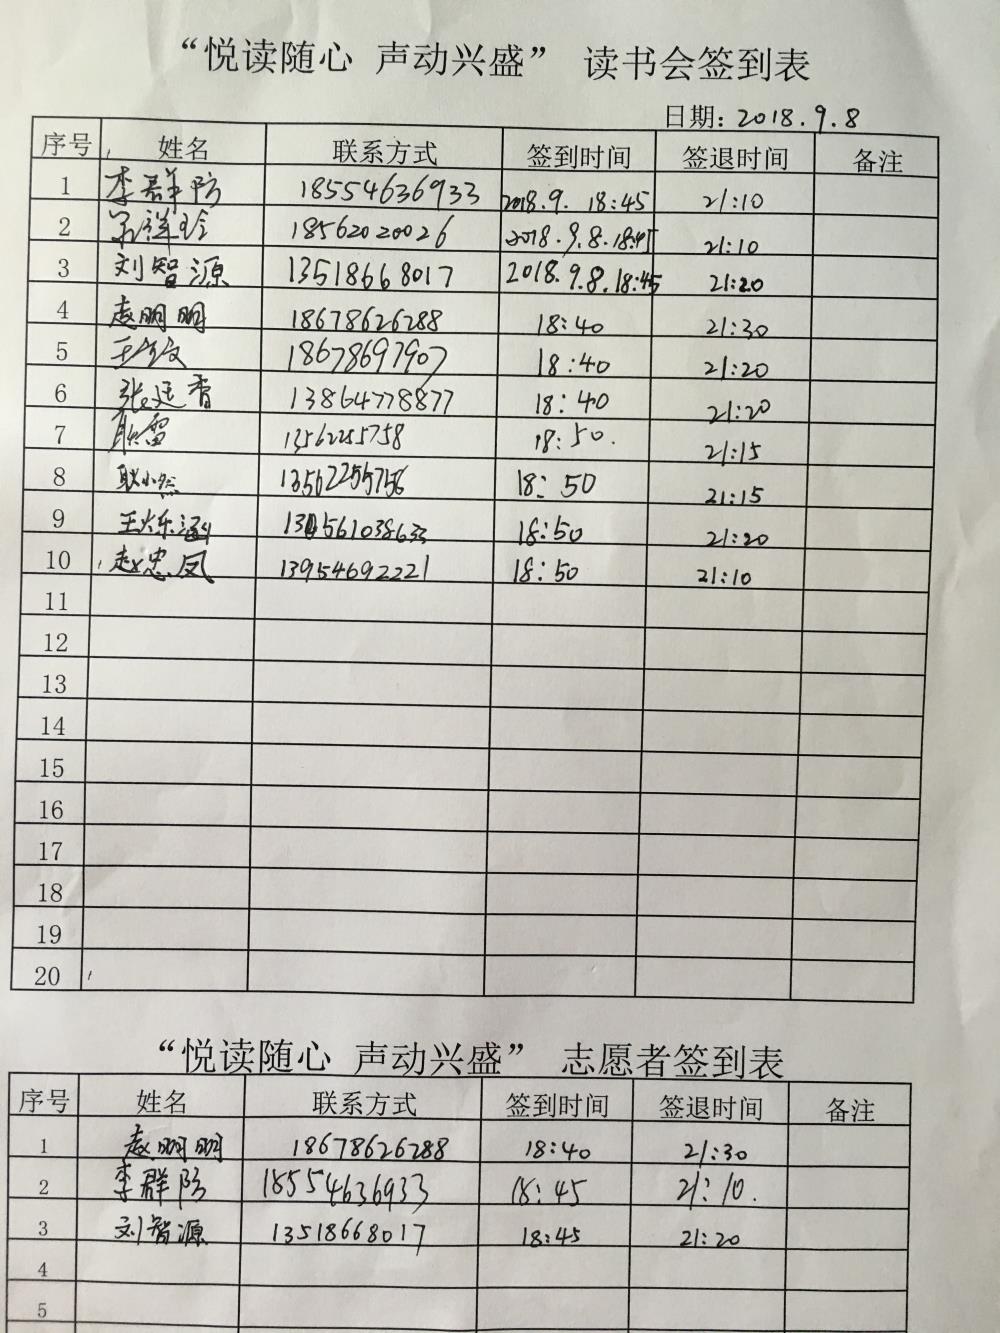 “悦读随心 声动兴盛” 读书会签到表
日期: 2018.9.8
序号 姓名 联系方式 签到时间 签退时间 备注
1 李群防 18554636933 2018.9. 18:45 21:10
2 18562020026 2018.9.8.18:45 21:10
3 刘智源 13518668017 2018.9.8.18:45 21:20
4 赵明明 18678626288 18:40 21:30
5 18678697907 18:40 21:20
6 张廷香 13864778877 18:40 21:20
7 耿雷 13562255758 18:50. 21:15
8 耿小然 13562255756 18:50 21:15
9 王烁涵 18:50 21:20
10 赵忠凤 13954692221 18:50 21:10
11
12
13
14
15
16
17
18
19
20
“悦读随心 声动兴盛” 志愿者签到表
序号 姓名 联系方式 签到时间 签退时间 备注
1 赵明明 18678626288 18:40 21:30
2 李群防 18554636933 18:45 21:10.
3 刘智源 13518668017 18:45 21:20
4
5